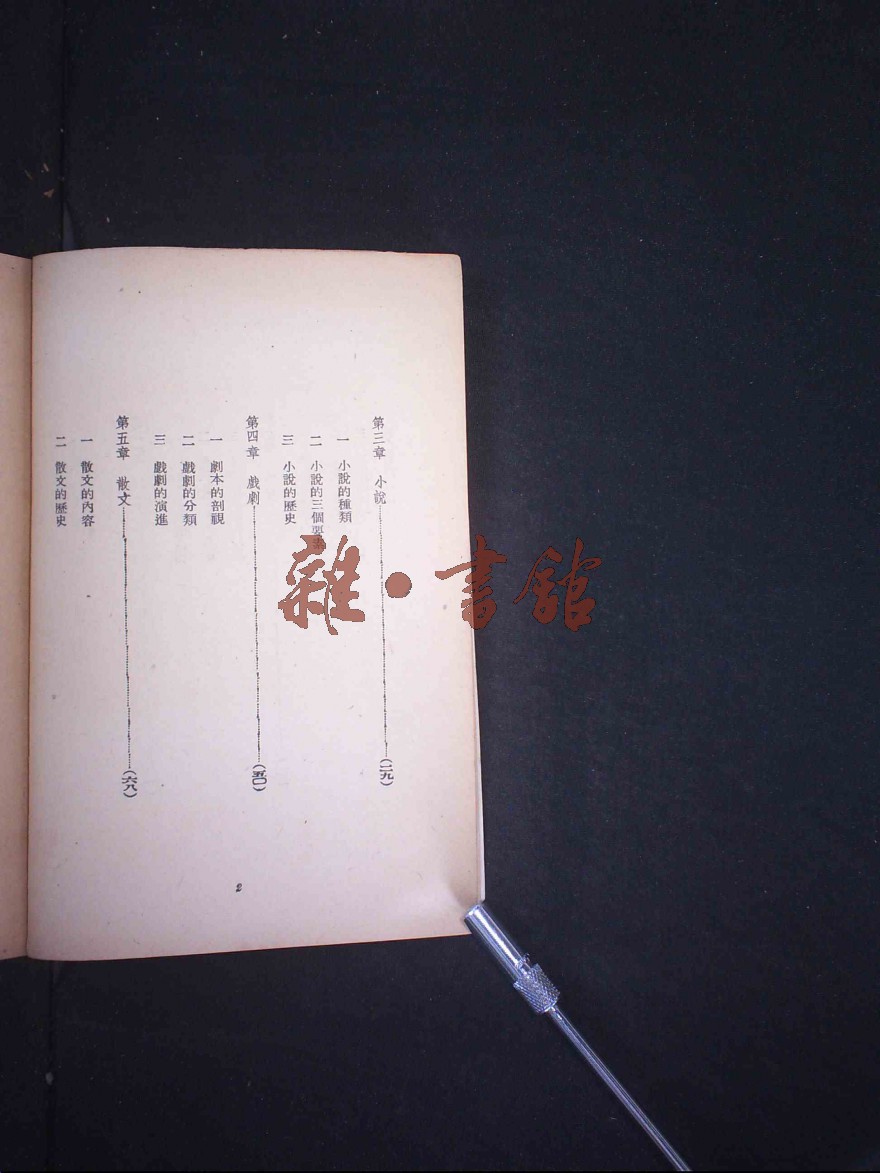 第三章 小說……(二九)
一 小說的種類
二 小說的三個要素
三 小說的歷史
第四章 戲劇……(五〇)
一 劇本的剖視
二 戲劇的分類
三 戲劇的演進
第五章 散文……(六八)
一 散文的內容
二 散文的歷史
2
雜·書館